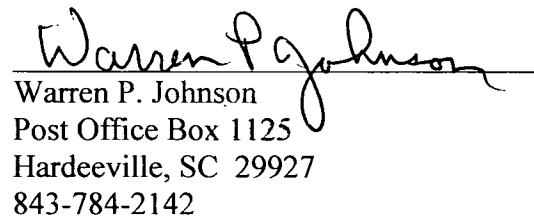 Warren P Johnson
Warren P. Johnson
Post Office Box 1125
Hardeeville, SC 29927
843-784-2142